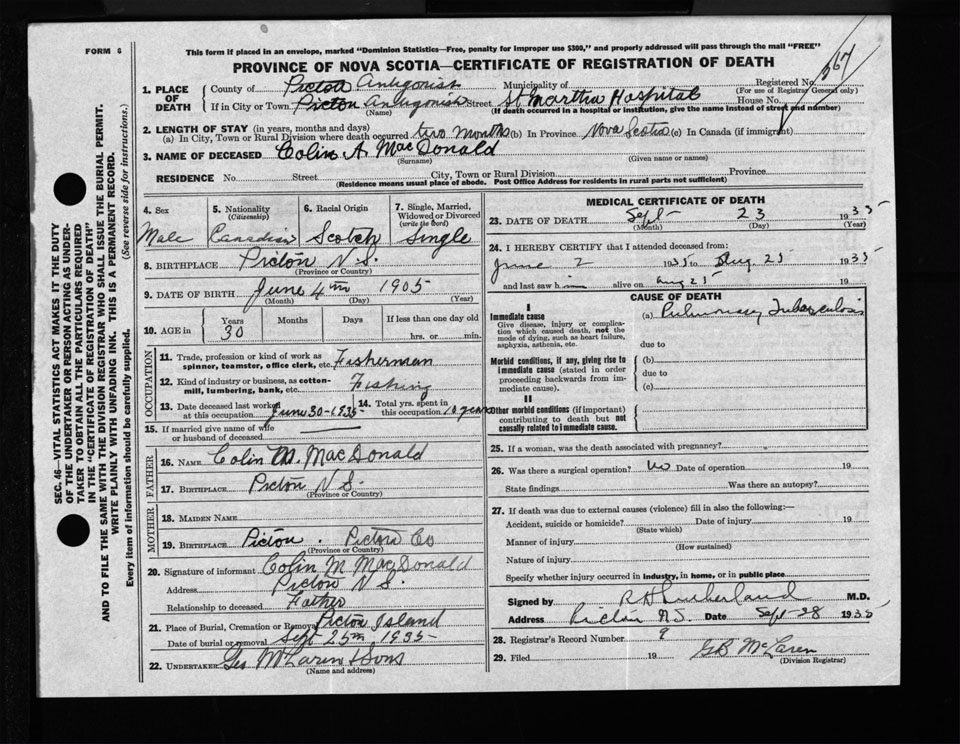 FORM 6
This form if placed in an envelope, marked "Dominion Statistics—Free, penalty for improper use $300," and properly addressed will pass through the mail "FREE"
PROVINCE OF NOVA SCOTIA—CERTIFICATE OF REGISTRATION OF DEATH
SEC. 46—VITAL STATISTICS ACT MAKES IT THE DUTY
OF THE UNDERTAKER OR PERSON ACTING AS UNDER-
TAKER TO OBTAIN ALL THE PARTICULARS REQUIRED
IN THE "CERTIFICATE OF REGISTRATION OF DEATH"
AND TO FILE THE SAME WITH THE DIVISION REGISTRAR WHO SHALL ISSUE THE BURIAL PERMIT.
WRITE PLAINLY WITH UNFADING INK. THIS IS A PERMANENT RECORD.
Every item of information should be carefully supplied. (See reverse side for instructions.)
1. PLACE OF DEATH
County of Pictou Antigonish Municipality of Registered No. 567
(For use of Registrar General only)
If in City or Town Pictou Antigonish Street St Martha Hospital House No.
(Name) (If death occurred in a hospital or institution, give the name instead of street and number)
2. LENGTH OF STAY (in years, months and days)
(a) In City, Town or Rural Division where death occurred two months (b) In Province Nova Scotia (c) In Canada (if immigrant)
3. NAME OF DECEASED Colin A. MacDonald
(Surname) (Given name or names)
RESIDENCE No. Street City, Town or Rural Division Province
(Residence means usual place of abode. Post Office Address for residents in rural parts not sufficient)
4. Sex 5. Nationality (Citizenship) 6. Racial Origin 7. Single, Married, Widowed or Divorced (write the word)
Male Canadian Scotch Single
8. BIRTHPLACE Pictou N.S.
(Province or Country)
9. DATE OF BIRTH June 4th 1905
(Month) (Day) (Year)
10. AGE in Years Months Days If less than one day old
30 hrs. or min.
OCCUPATION
11. Trade, profession or kind of work as
spinner, teamster, office clerk, etc. Fisherman
12. Kind of industry or business, as cotton-
mill, lumbering, bank, etc. Fishing
13. Date deceased last worked
at this occupation June 30-1935
14. Total yrs. spent in
this occupation 10 years
15. If married give name of wife
or husband of deceased
FATHER
16. NAME Colin M. MacDonald
17. BIRTHPLACE Pictou N.S.
(Province or Country)
MOTHER
18. MAIDEN NAME
19. BIRTHPLACE Pictou. Pictou Co
(Province or Country)
20. Signature of informant Colin M MacDonald
Address Pictou N.S.
Relationship to deceased Father
21. Place of Burial, Cremation or Removal Pictou Island
Date of burial or removal Sept 25th 1935
22. UNDERTAKER Geo McLaren & Sons
(Name and address)
MEDICAL CERTIFICATE OF DEATH
23. DATE OF DEATH Sept 23 1935
(Month) (Day) (Year)
24. I HEREBY CERTIFY that I attended deceased from:
June 2 1935 to Aug. 25 1935
and last saw him alive on Aug 25 19
CAUSE OF DEATH
I
Immediate cause
Give disease, injury or complica-
tion which caused death, not the
mode of dying, such as heart failure,
asphyxia, asthenia, etc.
(a) Pulmonary Tuberculosis
due to
Morbid conditions, if any, giving rise to
immediate cause (stated in order
proceeding backwards from im-
mediate cause).
(b)
due to
(c)
II
Other morbid conditions (if important)
contributing to death but not
causally related to immediate cause.
25. If a woman, was the death associated with pregnancy?
26. Was there a surgical operation? No Date of operation 19
State findings Was there an autopsy?
27. If death was due to external causes (violence) fill in also the following:—
Accident, suicide or homicide? Date of injury 19
(State which)
Manner of injury
(How sustained)
Nature of injury
Specify whether injury occurred in industry, in home, or in public place
Signed by R H Sutherland M.D.
Address Pictou N.S. Date Sept 28 1935
28. Registrar's Record Number 9
29. Filed 19 GB McLaren
(Division Registrar)